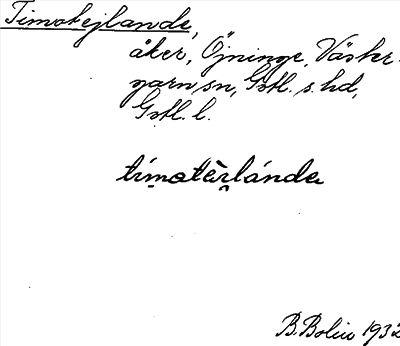 Timotejlande,
åker, Öjninge, Väster-
garn, sn, Gotl. s. hd,
Gotl. l.
timotèrlánde
B. Bolin 1932